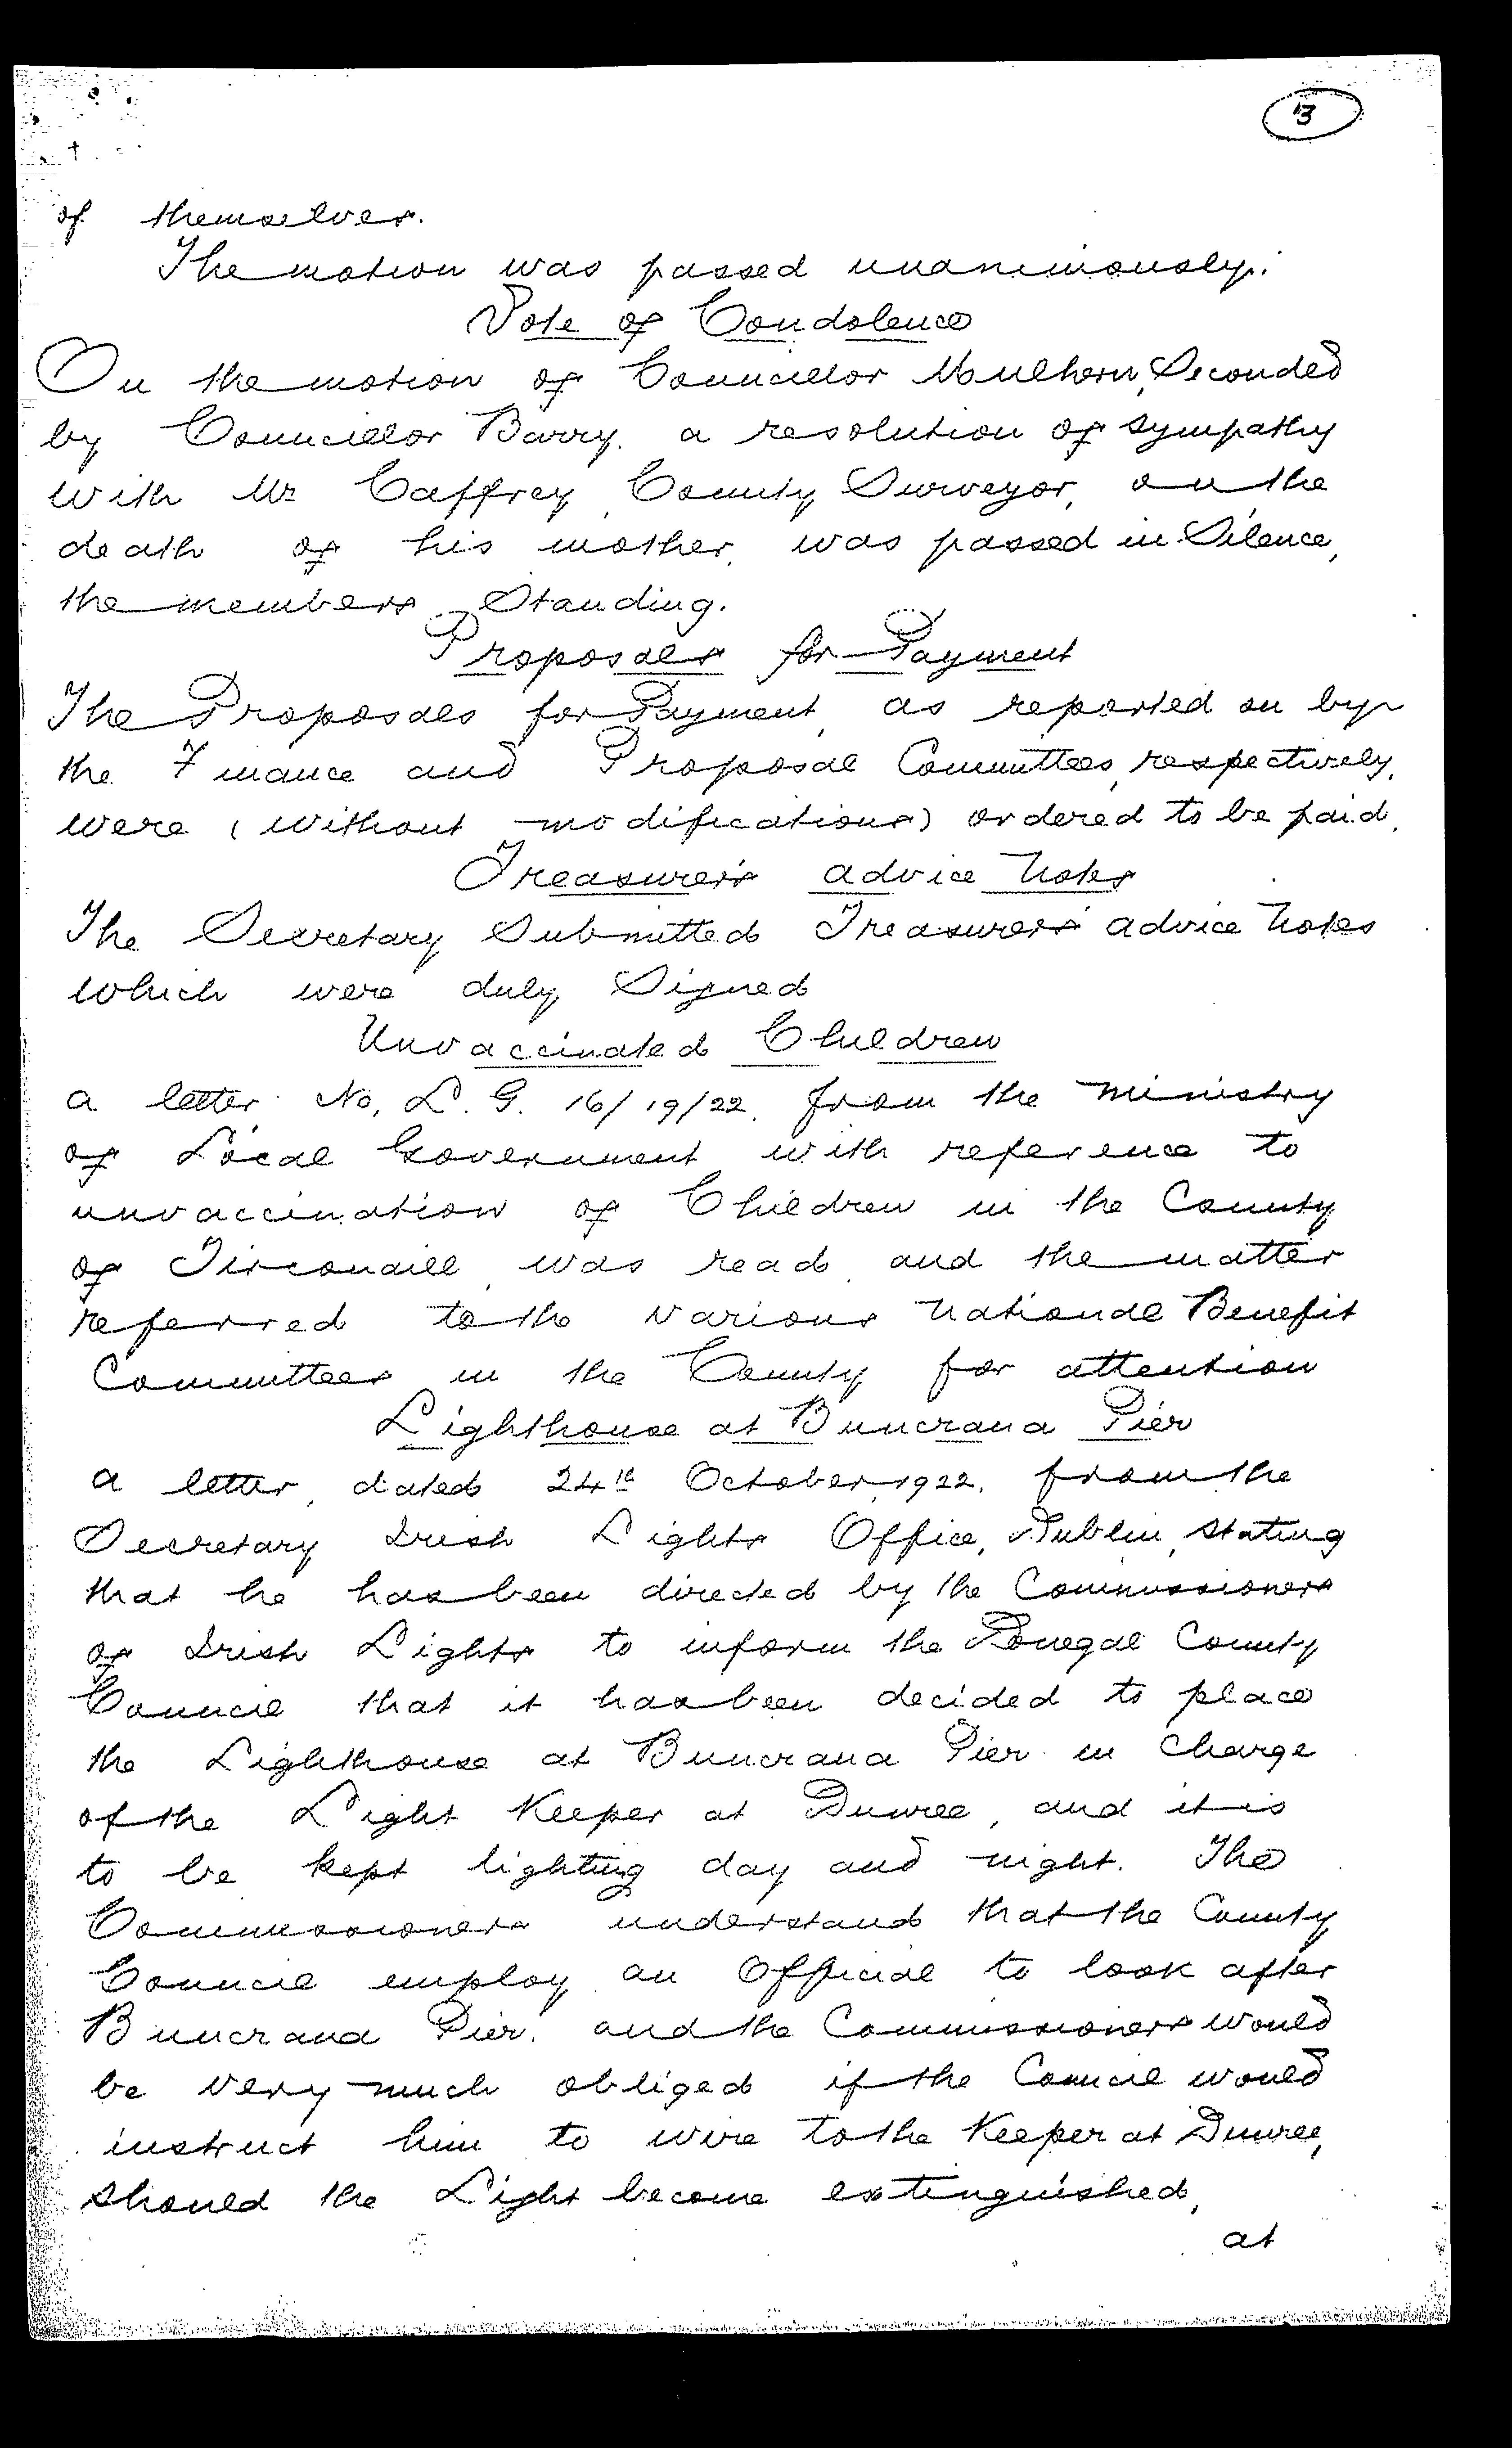 13
of themselves.
The motion was passed unanimously.
Vote of Condolence
On the motion of Councillor Mulhern, Seconded
by Councillor Barry, a resolution of sympathy
with Mr Caffrey, County Surveyor, on the
death of his mother, was passed in Silence,
the members Standing.
Proposals for Payment
The Proposals for Payment, as reported on by
the Finance and Proposal Committees, respectively,
were (without modifications) ordered to be paid.
Treasurer's advice Notes
The Secretary Submitted Treasurer's advice Notes
which were duly Signed
Unvaccinated Children
a letter No, L. G. 16/19/22. from the Ministry
of Local Government with reference to
unvaccination of Children in the County
of Tirconaill, was read, and the matter
referred to the various National Benefit
Committees in the County for attention
Lighthouse at Buncrana Pier
a letter, dated 24th October, 1922, from the
Secretary Irish Lights Office, Dublin, stating
that he has been directed by the Commissioners
of Irish Lights to inform the Donegal County
Council that it has been decided to place
the Lighthouse at Buncrana Pier in Charge
of the Light Keeper at Dunree, and it is
to be kept lighting day and night. The
Commissioners understand that the County
Council employ an Official to look after
Buncrana Pier, and the Commissioners would
be very much obliged if the Council would
instruct him to wire to the Keeper at Dunree,
should the Light become extinguished,
at